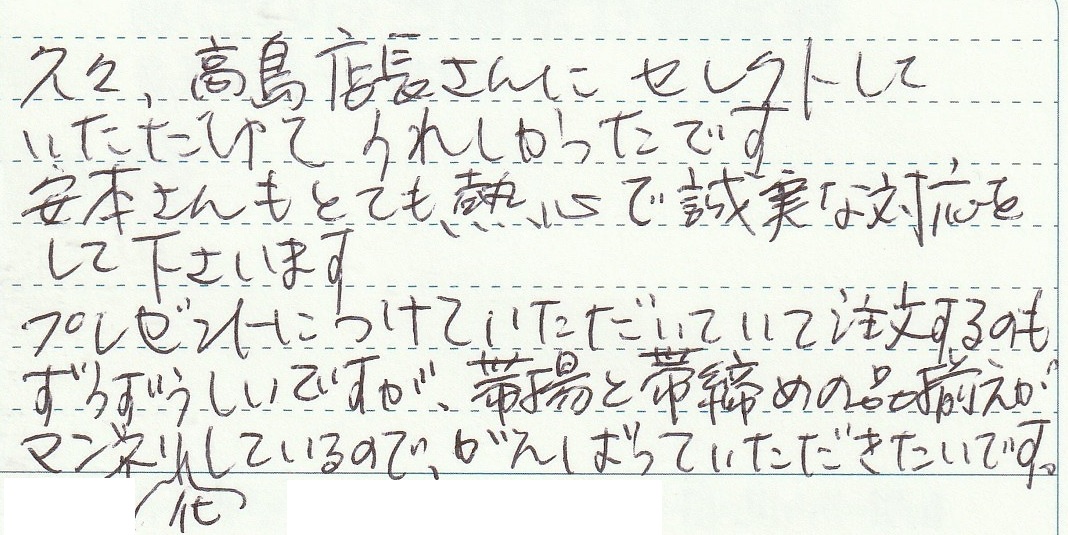 久々、高島店長さんに セレクトして
いただけて うれしかったです
安本さんもとても熱心で誠実な対応を
して下さいます
プレゼントにつけていただいていて注文するのも
ずうずうしいですが、帯揚と帯締めの品揃えが
マンネリ化しているので、がんばっていただきたいです。